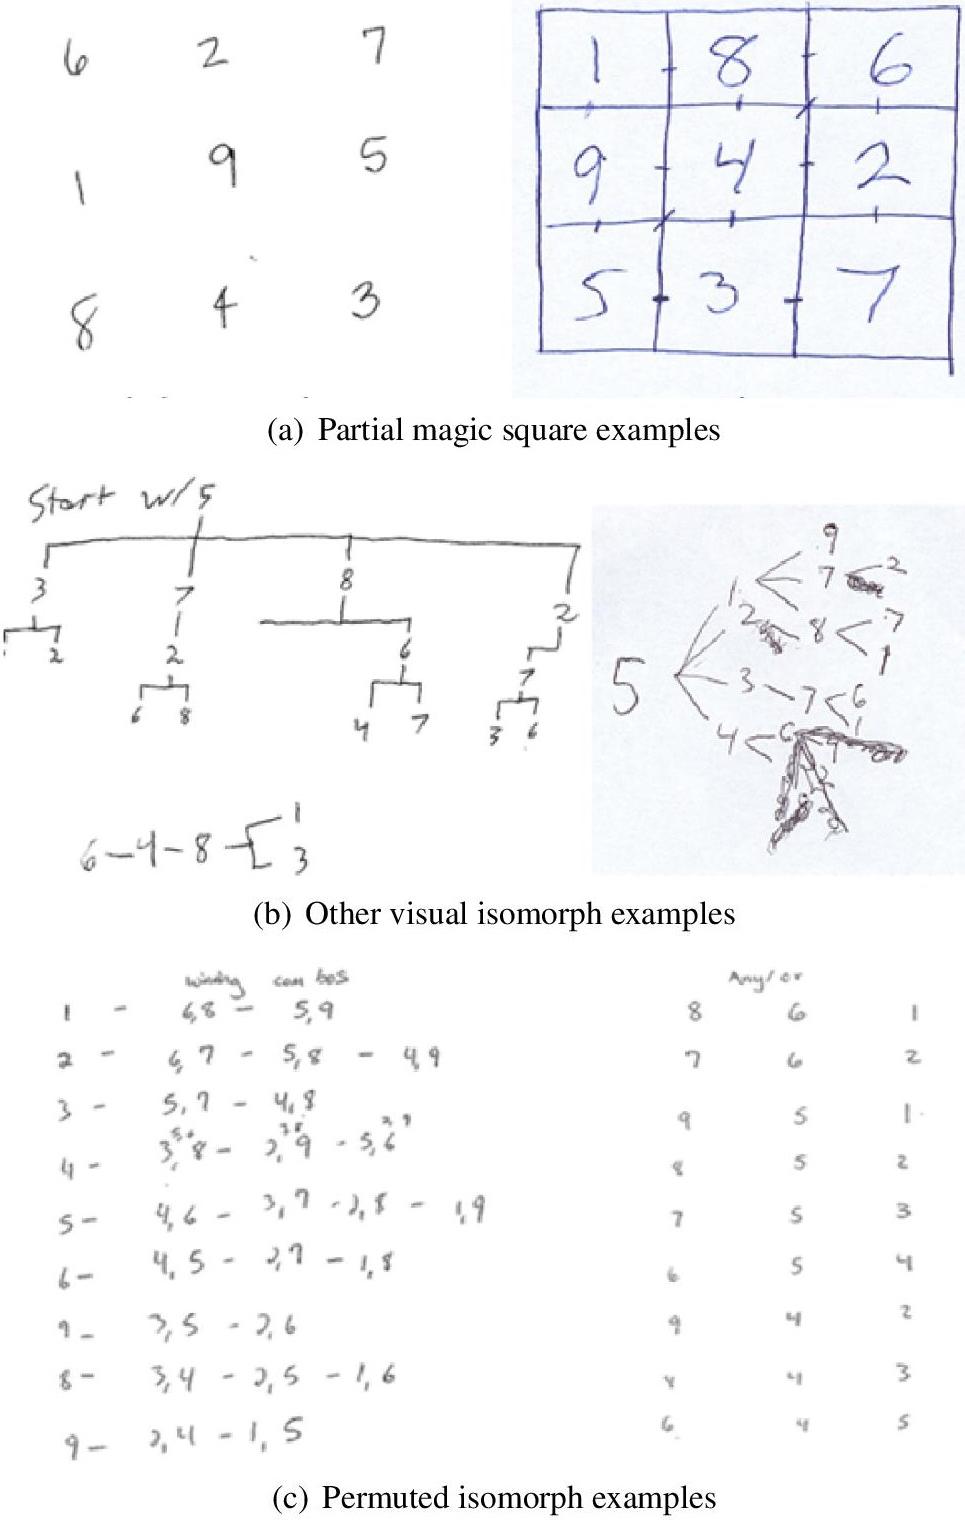 6 2 7
1 9 5
8 4 3
1 8 6
9 4 2
5 3 7
(a) Partial magic square examples
Start w/ 5
3 7 8 2
2 2 6 7
6 8 4 7 3 6
6-4-8 1
3
5
1 9
7 2
2 8 7
1
3 7 6
4 6 1
9
(b) Other visual isomorph examples
winning combos
1 - 6,8 - 5,9
2 - 6,7 - 5,8 - 4,9
3 - 5,7 - 4,8
4 - 3,8 - 2,9 - 5,6
5 - 4,6 - 3,7 - 2,8 - 1,9
6 - 4,5 - 2,7 - 1,8
7 - 3,5 - 2,6
8 - 3,4 - 2,5 - 1,6
9 - 2,4 - 1,5
Any/or
8 6 1
7 6 2
9 5 1
8 5 2
7 5 3
6 5 4
9 4 2
8 4 3
6 4 5
(c) Permuted isomorph examples